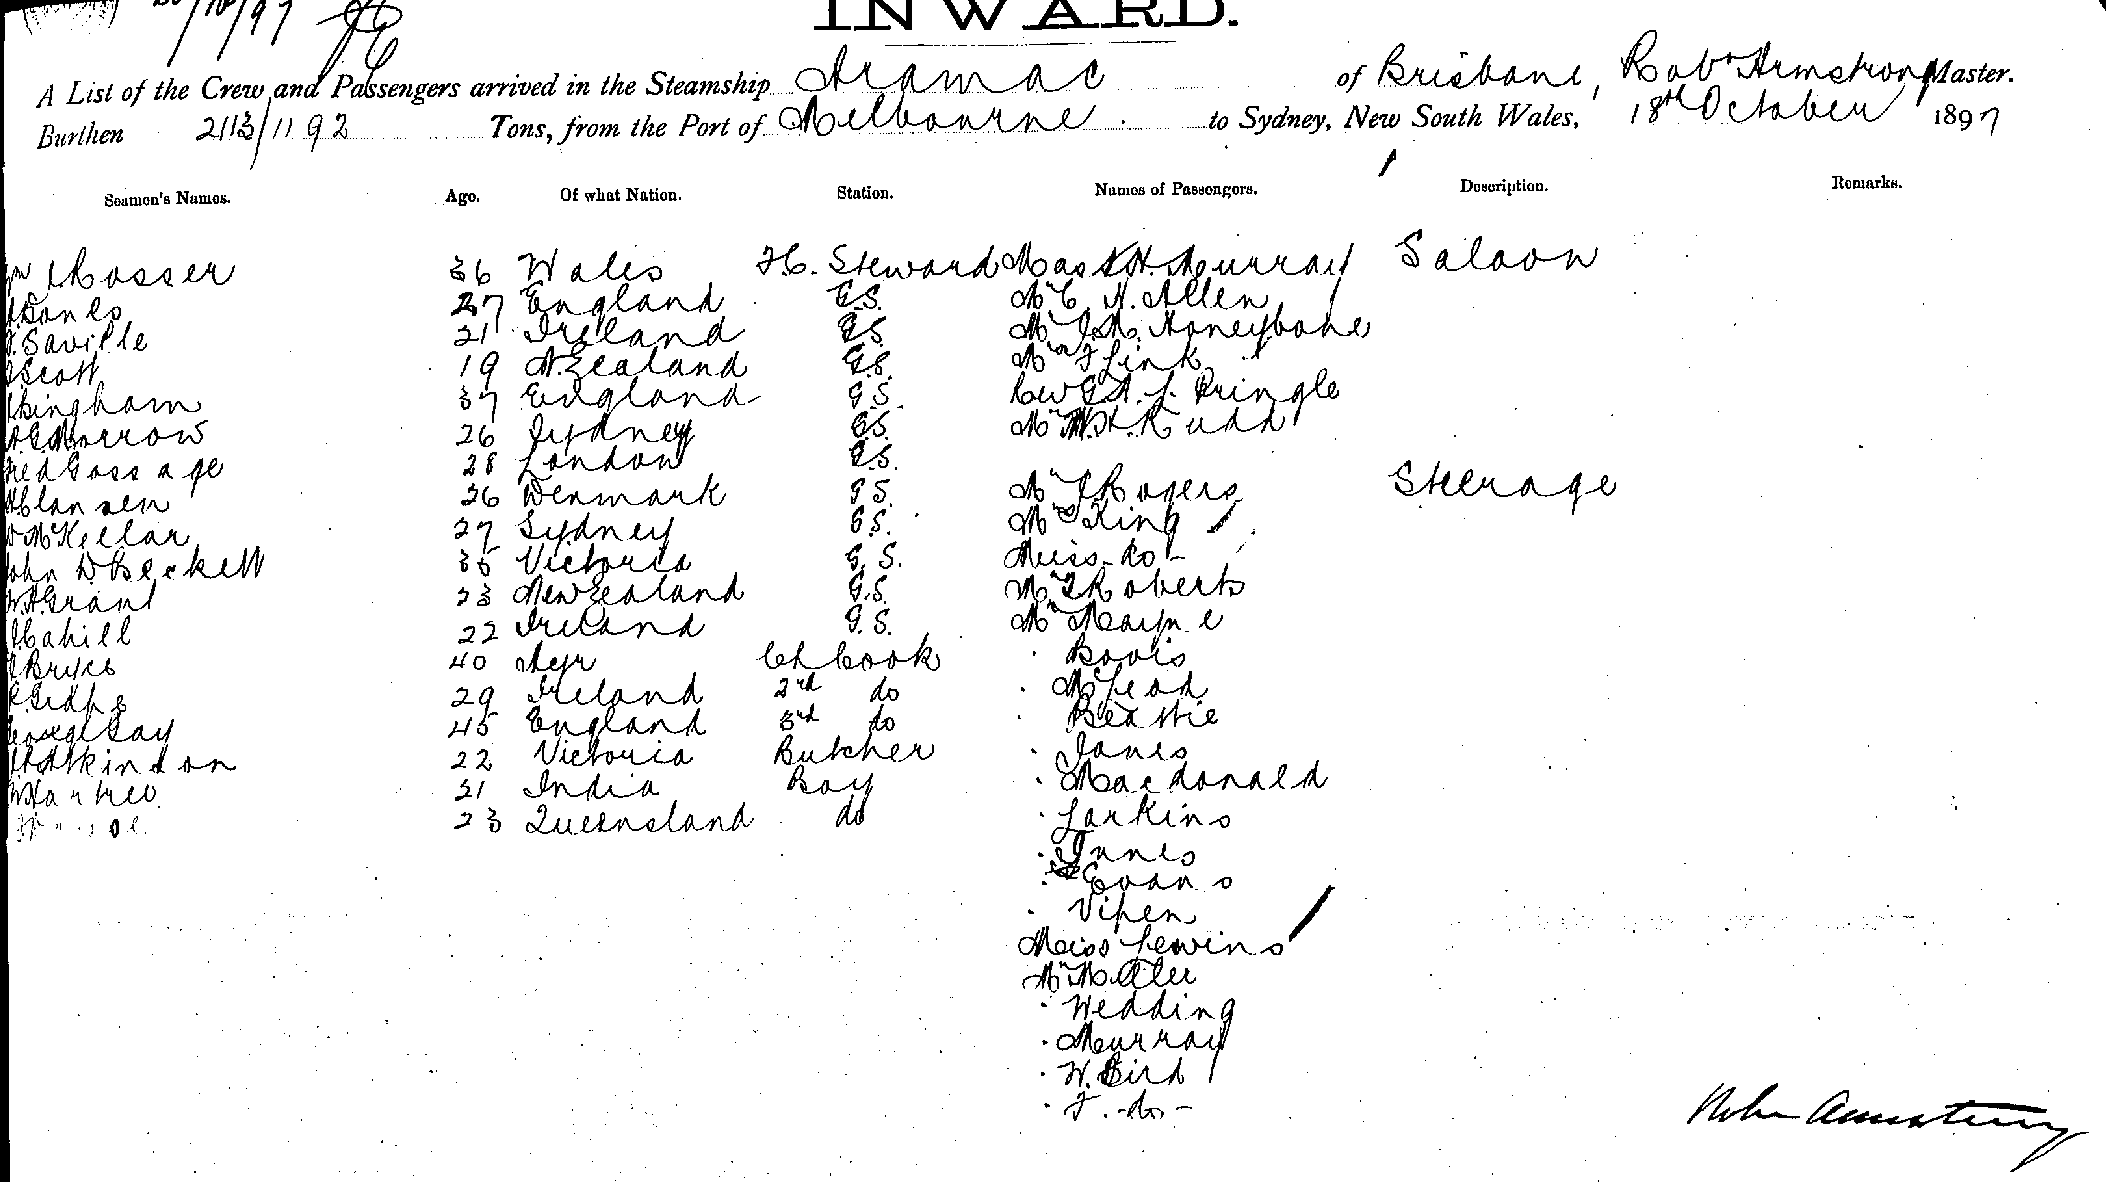 20/10/97
INWARD.
A List of the Crew and Passengers arrived in the Steamship Aramac of Brisbane, Robt Armstrong Master.
Burthen 2113/1192 Tons, from the Port of Melbourne to Sydney, New South Wales, 18th October 1897
Seamen's Names. Age. Of what Nation. Station. Names of Passengers. Description. Remarks.
Rosser 36 Wales F.C. Steward Mas A.H. Murray Saloon
27 England G.S. Mr C. H. Allen
Saville 21 Ireland G.S. Mr J.M. Honeybone
Scott 19 N. Zealand G.S. Mr F Link
Bingham 37 England G.S. G.A. L. Pringle
Morrow 26 Sydney G.S. Mr W.H. Rudd
Fred Gossage 28 London G.S.
Clansen 26 Denmark G.S. Mr J Rogers Steerage
McKellar 27 Sydney G.S. Mrs King
John D Beckett 35 Victoria G.S. Miss do -
W.A. Grant 23 New Zealand G.S. Mr T Roberts
Cahill 22 Ireland G.S. Mr Mayne
Bryce 40 Ayr Ch Cook Bovis
29 Ireland 2nd do McLeod
George Gay 45 England 3rd do Beattie
Atkinson 22 Victoria Butcher Jones
21 India Boy Macdonald
23 Queensland do Larkins
Innes
Evans
Vipen
Miss Lewins
Mr
Wedding
Murray
W. Bird
F. -do-
Robt Armstrong